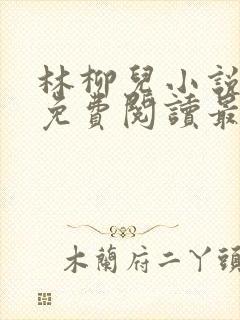 林柳兒小說
免費閱讀最
木蘭府二丫頭